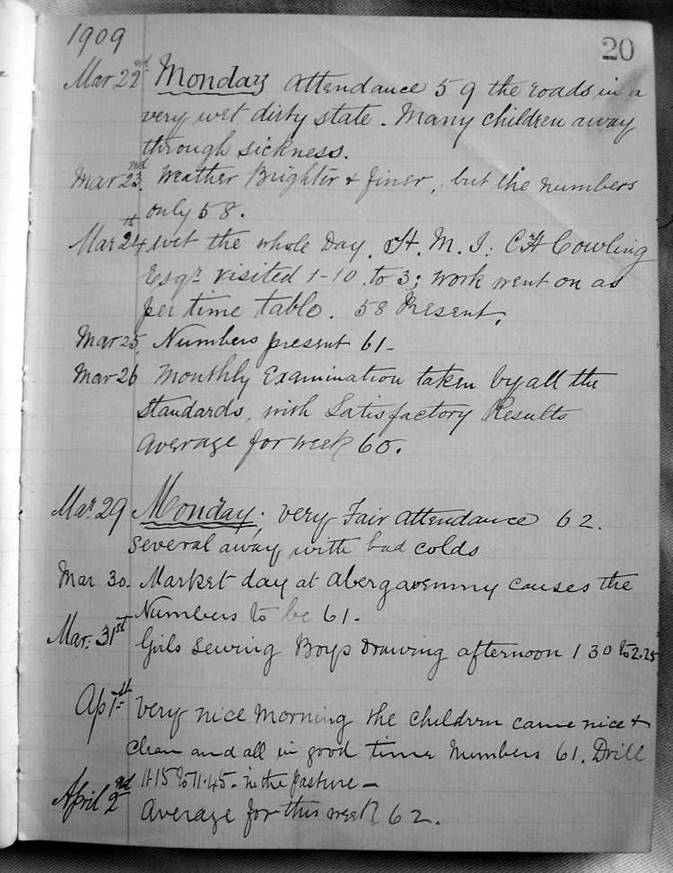 1909
20
Mar 22nd Monday Attendance 59 the roads in a
very wet dirty state. Many children away
through sickness.
Mar 23nd. Weather Brighter & finer, but the numbers
only 58.
Mar 24th wet the whole Day. H. M. I: C H Cowling
Esqr visited 1-10 to 3; work went on as
per time table. 58 Present.
Mar 25. Numbers present 61-
Mar 26 Monthly Examination taken by all the
standards, with Satisfactory Results
Average for week 60.
Mar 29 Monday; very Fair attendance 62.
several away with bad colds
Mar 30. Market day at Abergavenny causes the
Numbers to be 61.
Mar. 31st Girls Sewing Boys Drawing afternoon 1 30 to 2.25
Ap 1st Very nice Morning the children came nice &
clean and all in good time Numbers 61. Drill
11.15 to 11.45. in the pasture -
April 2nd Average for this week 62.